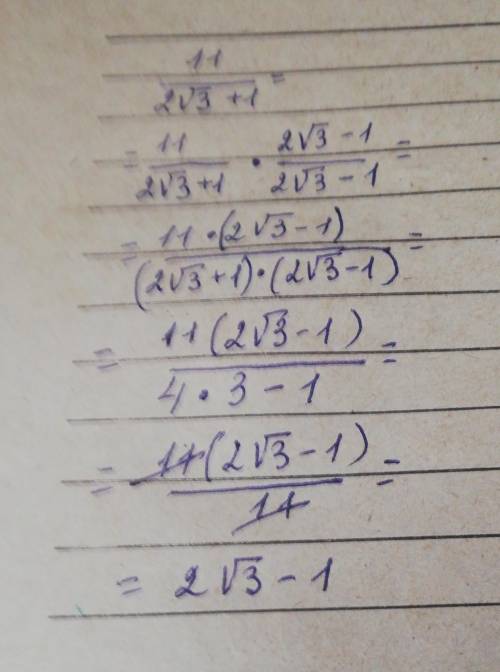 11/(2√3 + 1) =
= 11/(2√3 + 1) · (2√3 - 1)/(2√3 - 1) =
= 11 · (2√3 - 1)/((2√3 + 1) · (2√3 - 1)) =
= 11(2√3 - 1)/(4 · 3 - 1) =
= 11(2√3 - 1)/11 =
= 2√3 - 1